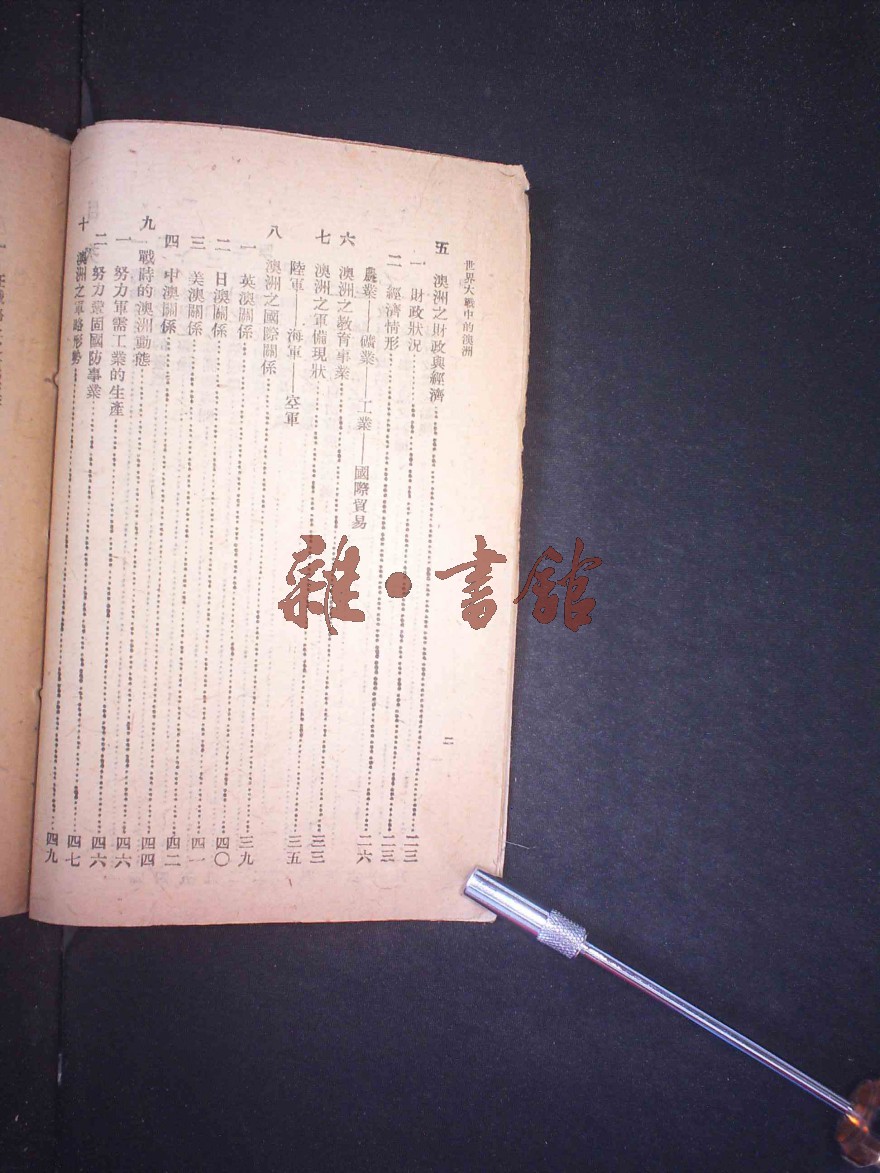 世界大戰中的澳洲 二
五 澳洲之財政與經濟……二三
一 財政狀況……二三
二 經濟情形……二六
農業——礦業——工業——國際貿易
六 澳洲之教育事業……三三
七 澳洲之軍備現狀……三五
陸軍——海軍——空軍
八 澳洲之國際關係……三九
一 英澳關係……四〇
二 日澳關係……四一
三 美澳關係……四二
四 中澳關係……四四
九 戰時的澳洲動態……四六
一 努力軍需工業的生產……四六
二 努力鞏固國防事業……四七
十 澳洲之軍略形勢……四九
雜·書館